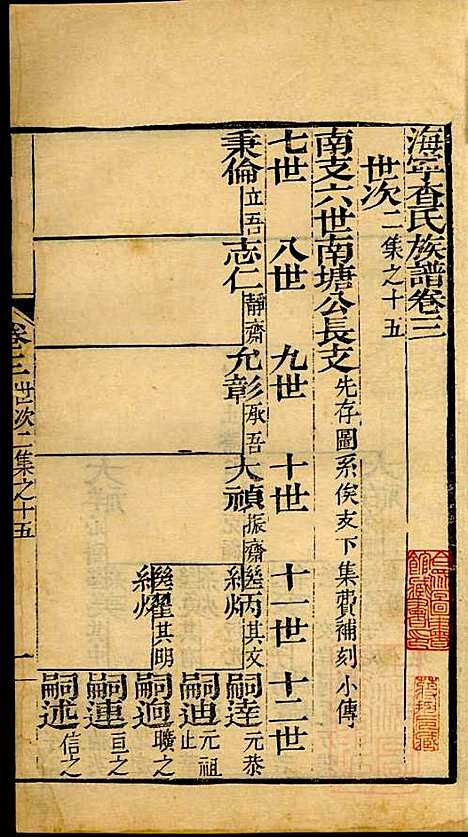 海寧查氏族譜卷三
世次二集之十五
南支六世南塘公長支先存圖系俟支下集費補刻小傳
七世 八世 九世 十世 十一世 十二世
秉倫立吾 志仁靜齋 允彰承吾 大禎振齋 繼炳其文 嗣逵元恭
嗣迪元祖止
繼燿其明 嗣迥曠之
嗣連亘之
繼燦
嗣述信之
卷三 世次二集之十五 一